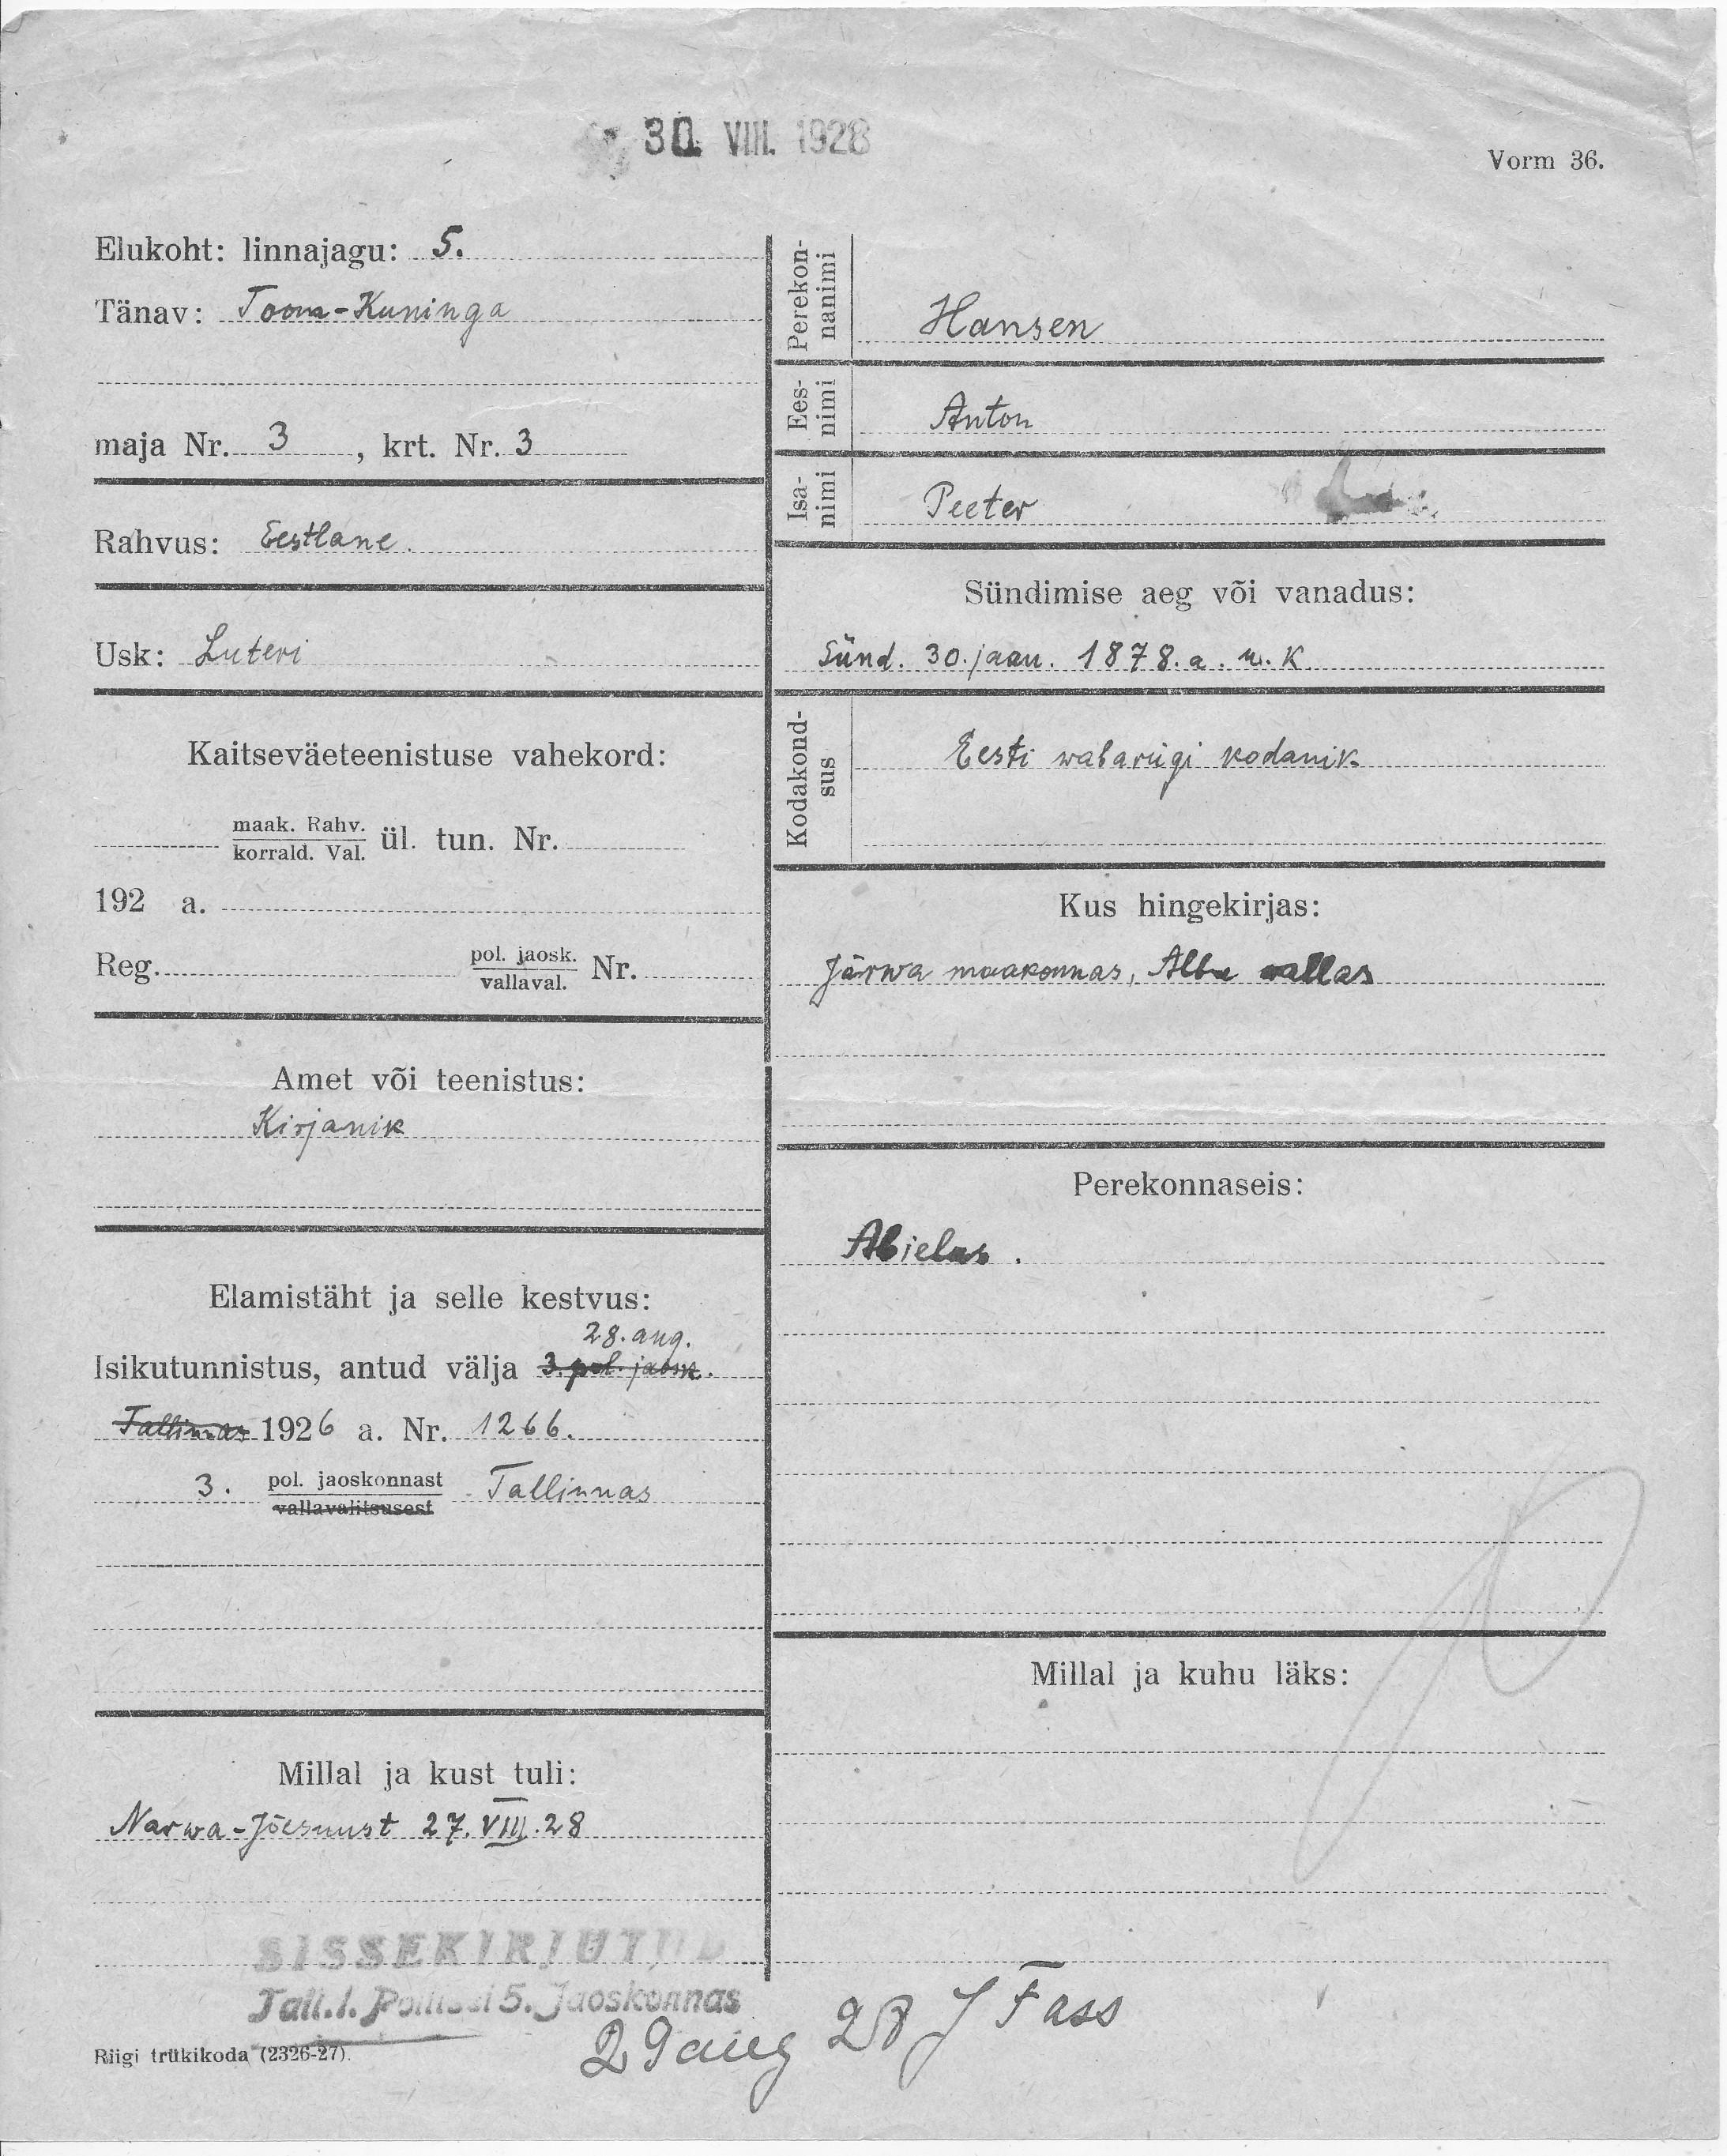 30. VIII. 1928
Vorm 36.
Elukoht: linnajagu: 5.
Tänav: Toom-Kuninga
maja Nr. 3, krt. Nr. 3
Rahvus: Eestlane.
Usk: Luteri
Kaitseväeteenistuse vahekord:
maak. Rahv.
korrald. Val. ül. tun. Nr.
192 a.
Reg. pol. jaosk.
vallaval. Nr.
Amet või teenistus:
Kirjanik
Elamistäht ja selle kestvus:
28. aug.
Isikutunnistus, antud välja 3. pol. jaosk.
Tallinnas 1926 a. Nr. 1266.
3. pol. jaoskonnast Tallinnas
vallavalitsusest
Millal ja kust tuli:
Narwa-Jõesuust 27. VIII. 28
Perekon-
nanimi
Hansen
Ees-
nimi
Anton
Isa-
nimi
Peeter
Sündimise aeg või vanadus:
Sünd. 30. jaan. 1878. a. u. K.
Kodakond-
sus
Eesti wabariigi kodanik
Kus hingekirjas:
Järwa maakonnas, Albu vallas
Perekonnaseis:
Abielus.
Millal ja kuhu läks:
SISSEKIRJUTUD
Tall.l. Politsei 5. Jaoskonnas
29 aug 28 J Fass
Riigi trükikoda (2326-27).